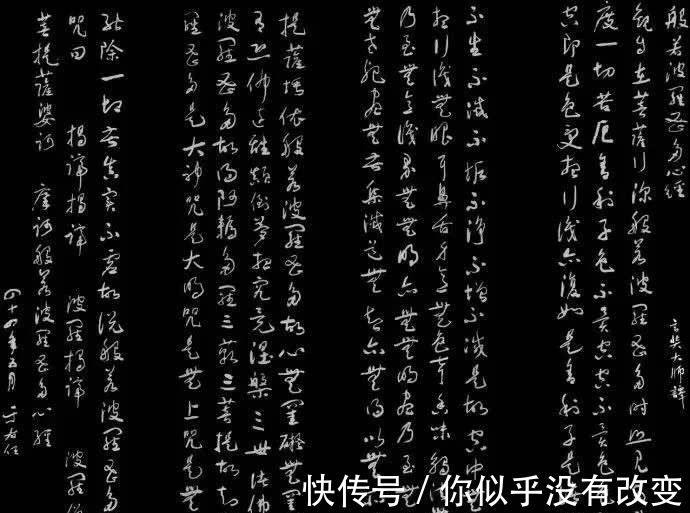 般若波羅蜜多心經
玄奘大師譯
觀自在菩薩行深般若波羅蜜多時照見
度一切苦厄舍利子色不異空空不異色
空即是色受想行識亦復如是舍利子是
不生不滅不垢不淨不增不減是故空中無
想行識無眼耳鼻舌身意無色聲香味觸
乃至無意識界無無明亦無無明盡乃至無
無老死盡無苦集滅道無智亦無得以無
提薩埵依般若波羅蜜多故心無罣礙無罣
有恐怖遠離顛倒夢想究竟涅槃三世諸佛
波羅蜜多故得阿耨多羅三藐三菩提故知
羅蜜多是大神咒是大明咒是無上咒是無
能除一切苦真實不虛故說般若波羅蜜多
咒曰 揭諦揭諦 波羅揭諦 波羅僧
菩提薩婆訶 摩訶般若波羅蜜多心經
四十四年五月 于右任
快传号/你似乎没有改变